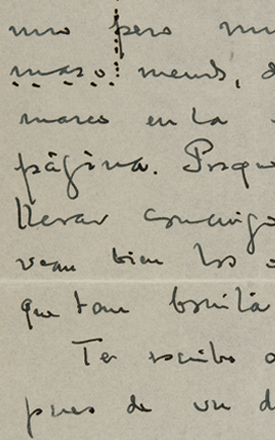 uno pero
mas o menos,
marco en la
página. Porque
llevar conmigo
vean bien los
que tan bonita
Te escribo
pues de un d